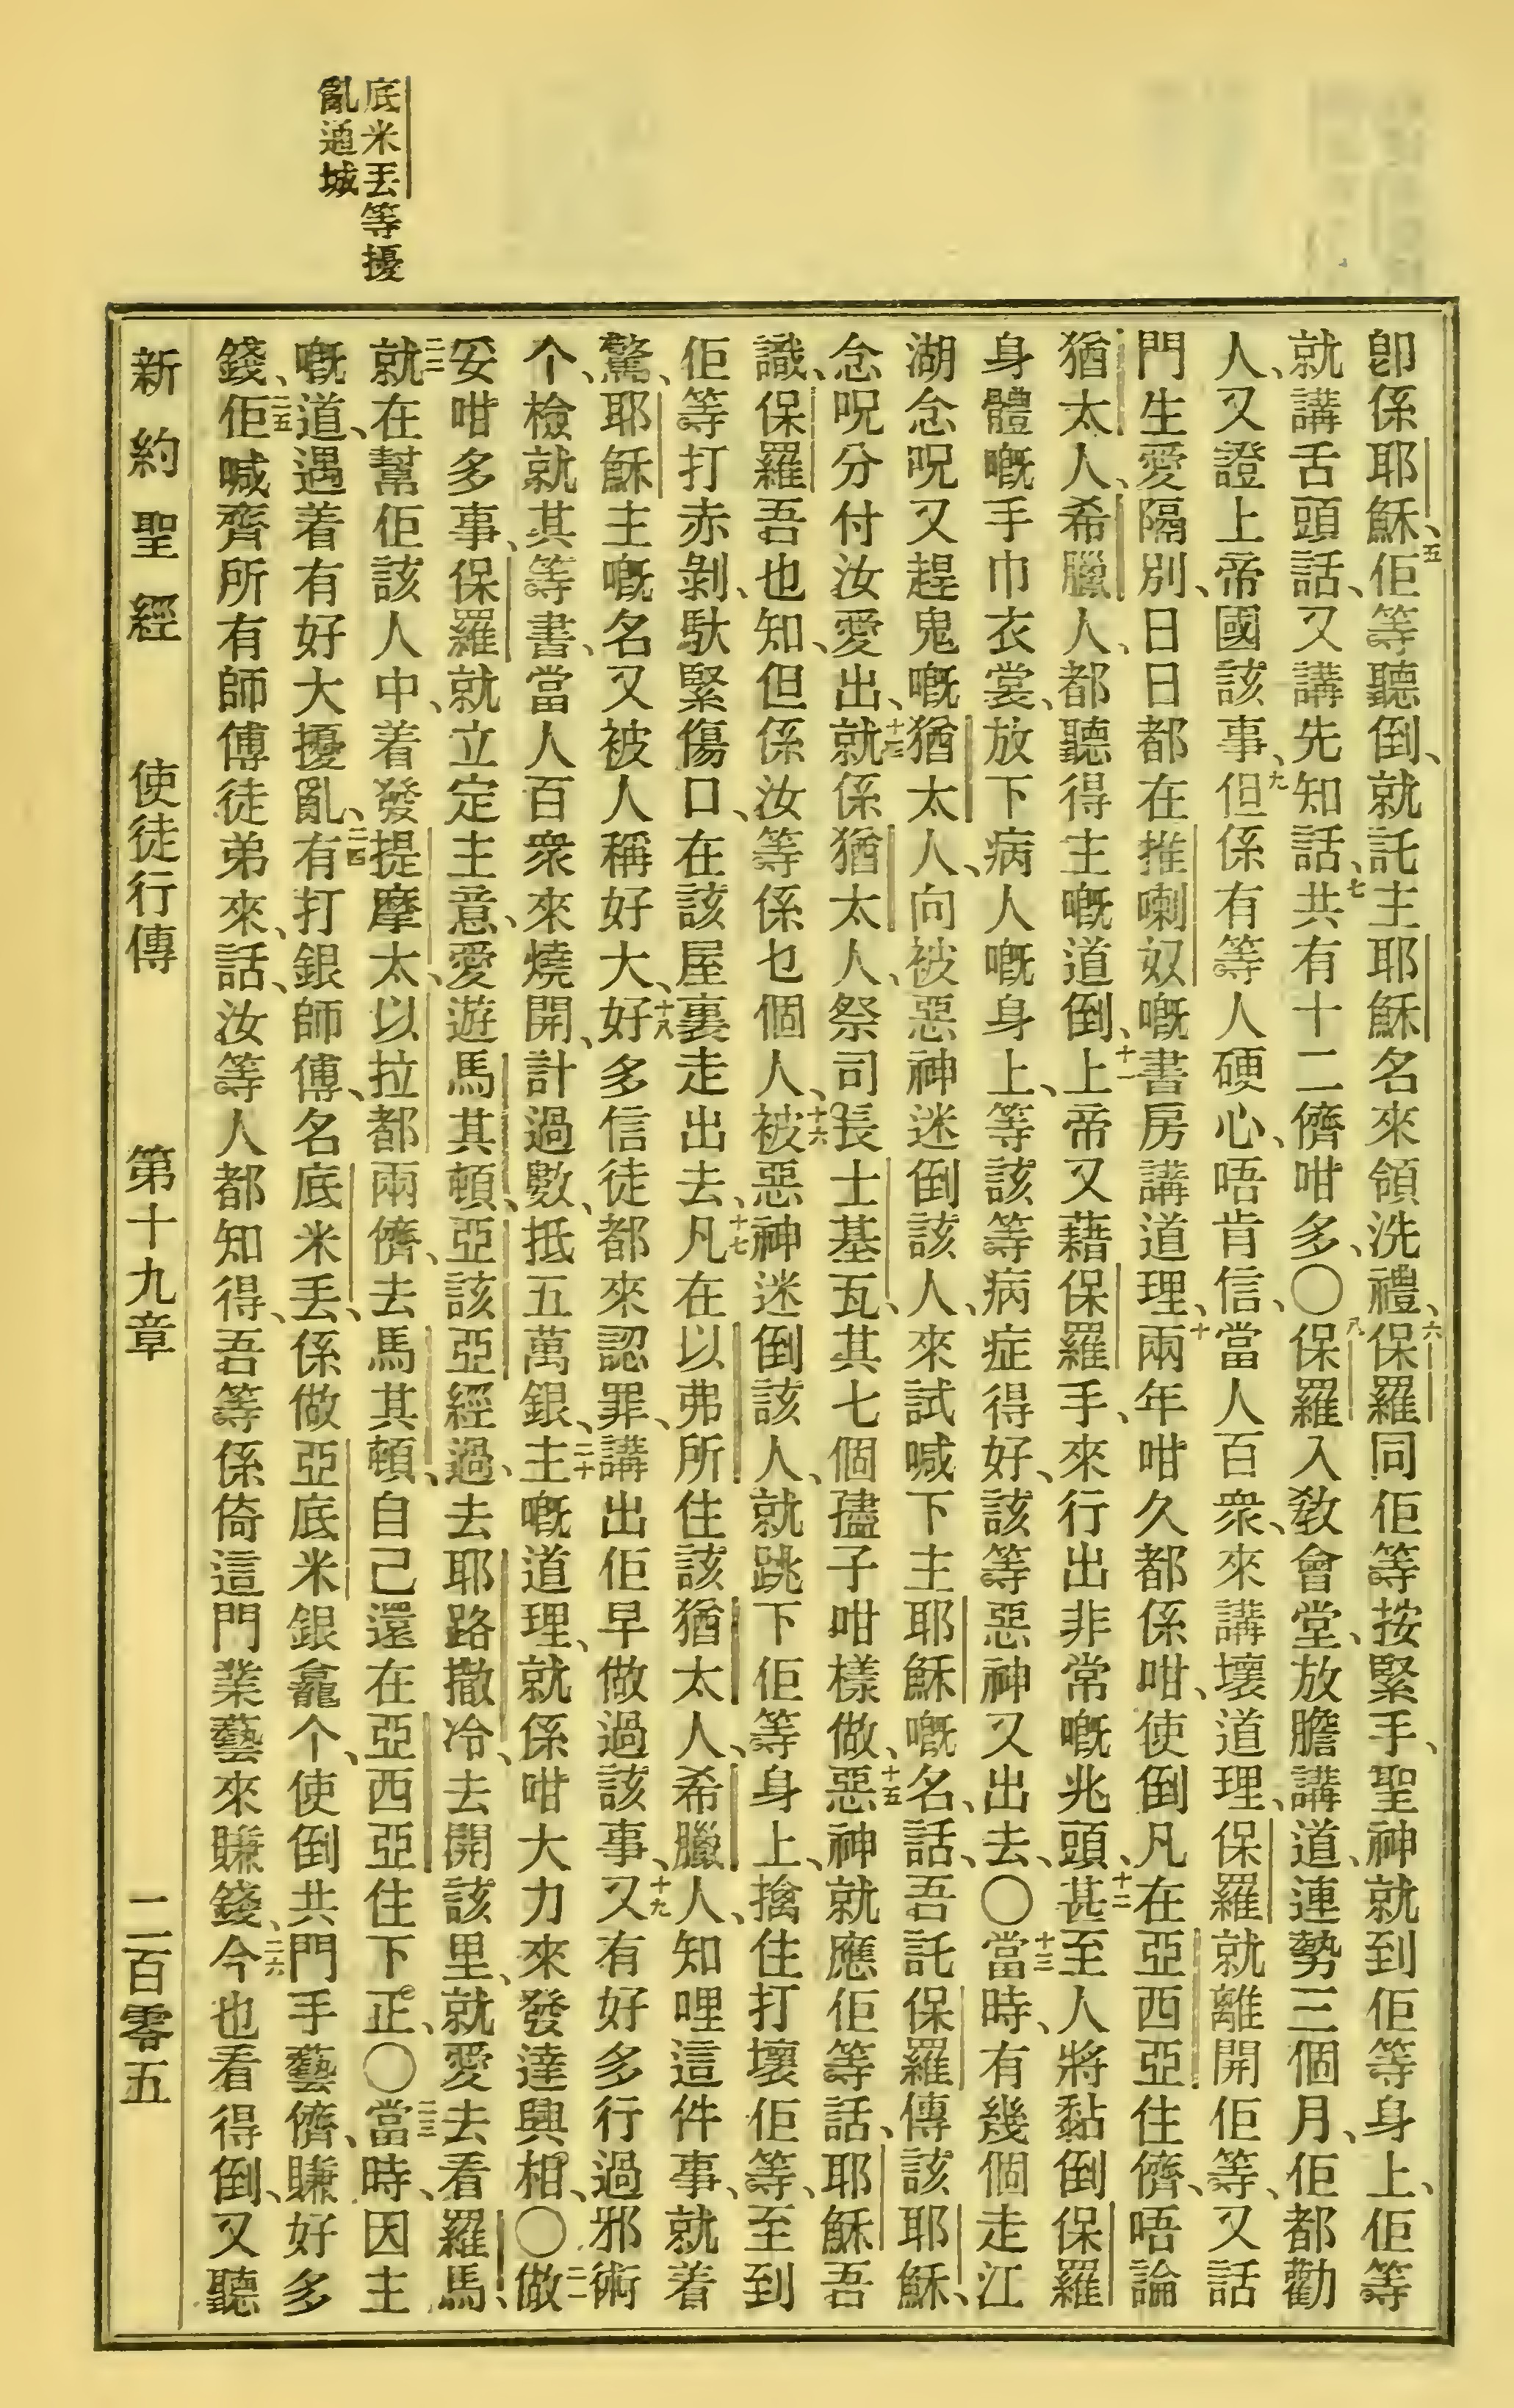 底米丢等擾
亂通城
卽係耶穌、五佢等聽倒、就託主耶穌名來領洗禮、六保羅同佢等按緊手、聖神就到佢等身上、佢等
就講舌頭話、又講先知話、七共有十二儕咁多、〇八保羅入敎會堂、放膽講道、連勢三個月、佢都勸
人、又證上帝國該事、九但係有等人硬心、唔肯信、當人百衆、來講壞道理、保羅就離開佢等、又話
門生愛隔別、日日都在推喇奴嘅書房講道理、十兩年咁久都係咁、使倒凡在亞西亞住儕、唔論
猶太人、希臘人、都聽得主嘅道倒、十一上帝又藉保羅手、來行出非常嘅兆頭、十二甚至人將黏倒保羅
身體嘅手巾衣裳、放下病人嘅身上、等該等病症得好、該等惡神又出去、〇十三當時、有幾個走江
湖念呪又趕鬼嘅猶太人、向被惡神迷倒該人、來試喊下主耶穌嘅名、話、吾託保羅傳該耶穌、
念呪分付汝愛出、十四就係猶太人、祭司長士基瓦、其七個孻子咁樣做、十五惡神就應佢等話、耶穌吾
識、保羅吾也知、但係汝等係乜個人、十六被惡神迷倒該人、就跳下佢等身上、擒住打壞佢等、至到
佢等打赤剝、馱緊傷口、在該屋裏走出去、十七凡在以弗所住該猶太人、希臘人、知哩這件事、就着
驚、耶穌主嘅名又被人稱好大、十八好多信徒都來認罪、講出佢早做過該事、十九又有好多行過邪術
个、檢就其等書、當人百衆來燒開、計過數、抵五萬銀、二十主嘅道理、就係咁大力來發達興相、〇二一做
妥咁多事、保羅就立定主意、愛遊馬其頓、亞該亞經過、去耶路撒冷、去開該里、就愛去看羅馬、
二二就在幫佢該人中、着發提摩太、以拉都兩儕、去馬其頓、自己還在亞西亞住下正、〇二三當時、因主
嘅道、遇着有好大擾亂、二四有打銀師傅、名底米丢、係做亞底米銀龕个、使倒共門手藝儕、賺好多
錢、二五佢喊齊所有師傅徒弟來、話、汝等人都知得、吾等係倚這門業藝來賺錢、二六今也看得倒、又聽
新約聖經　使徒行傳　第十九章　二百零五